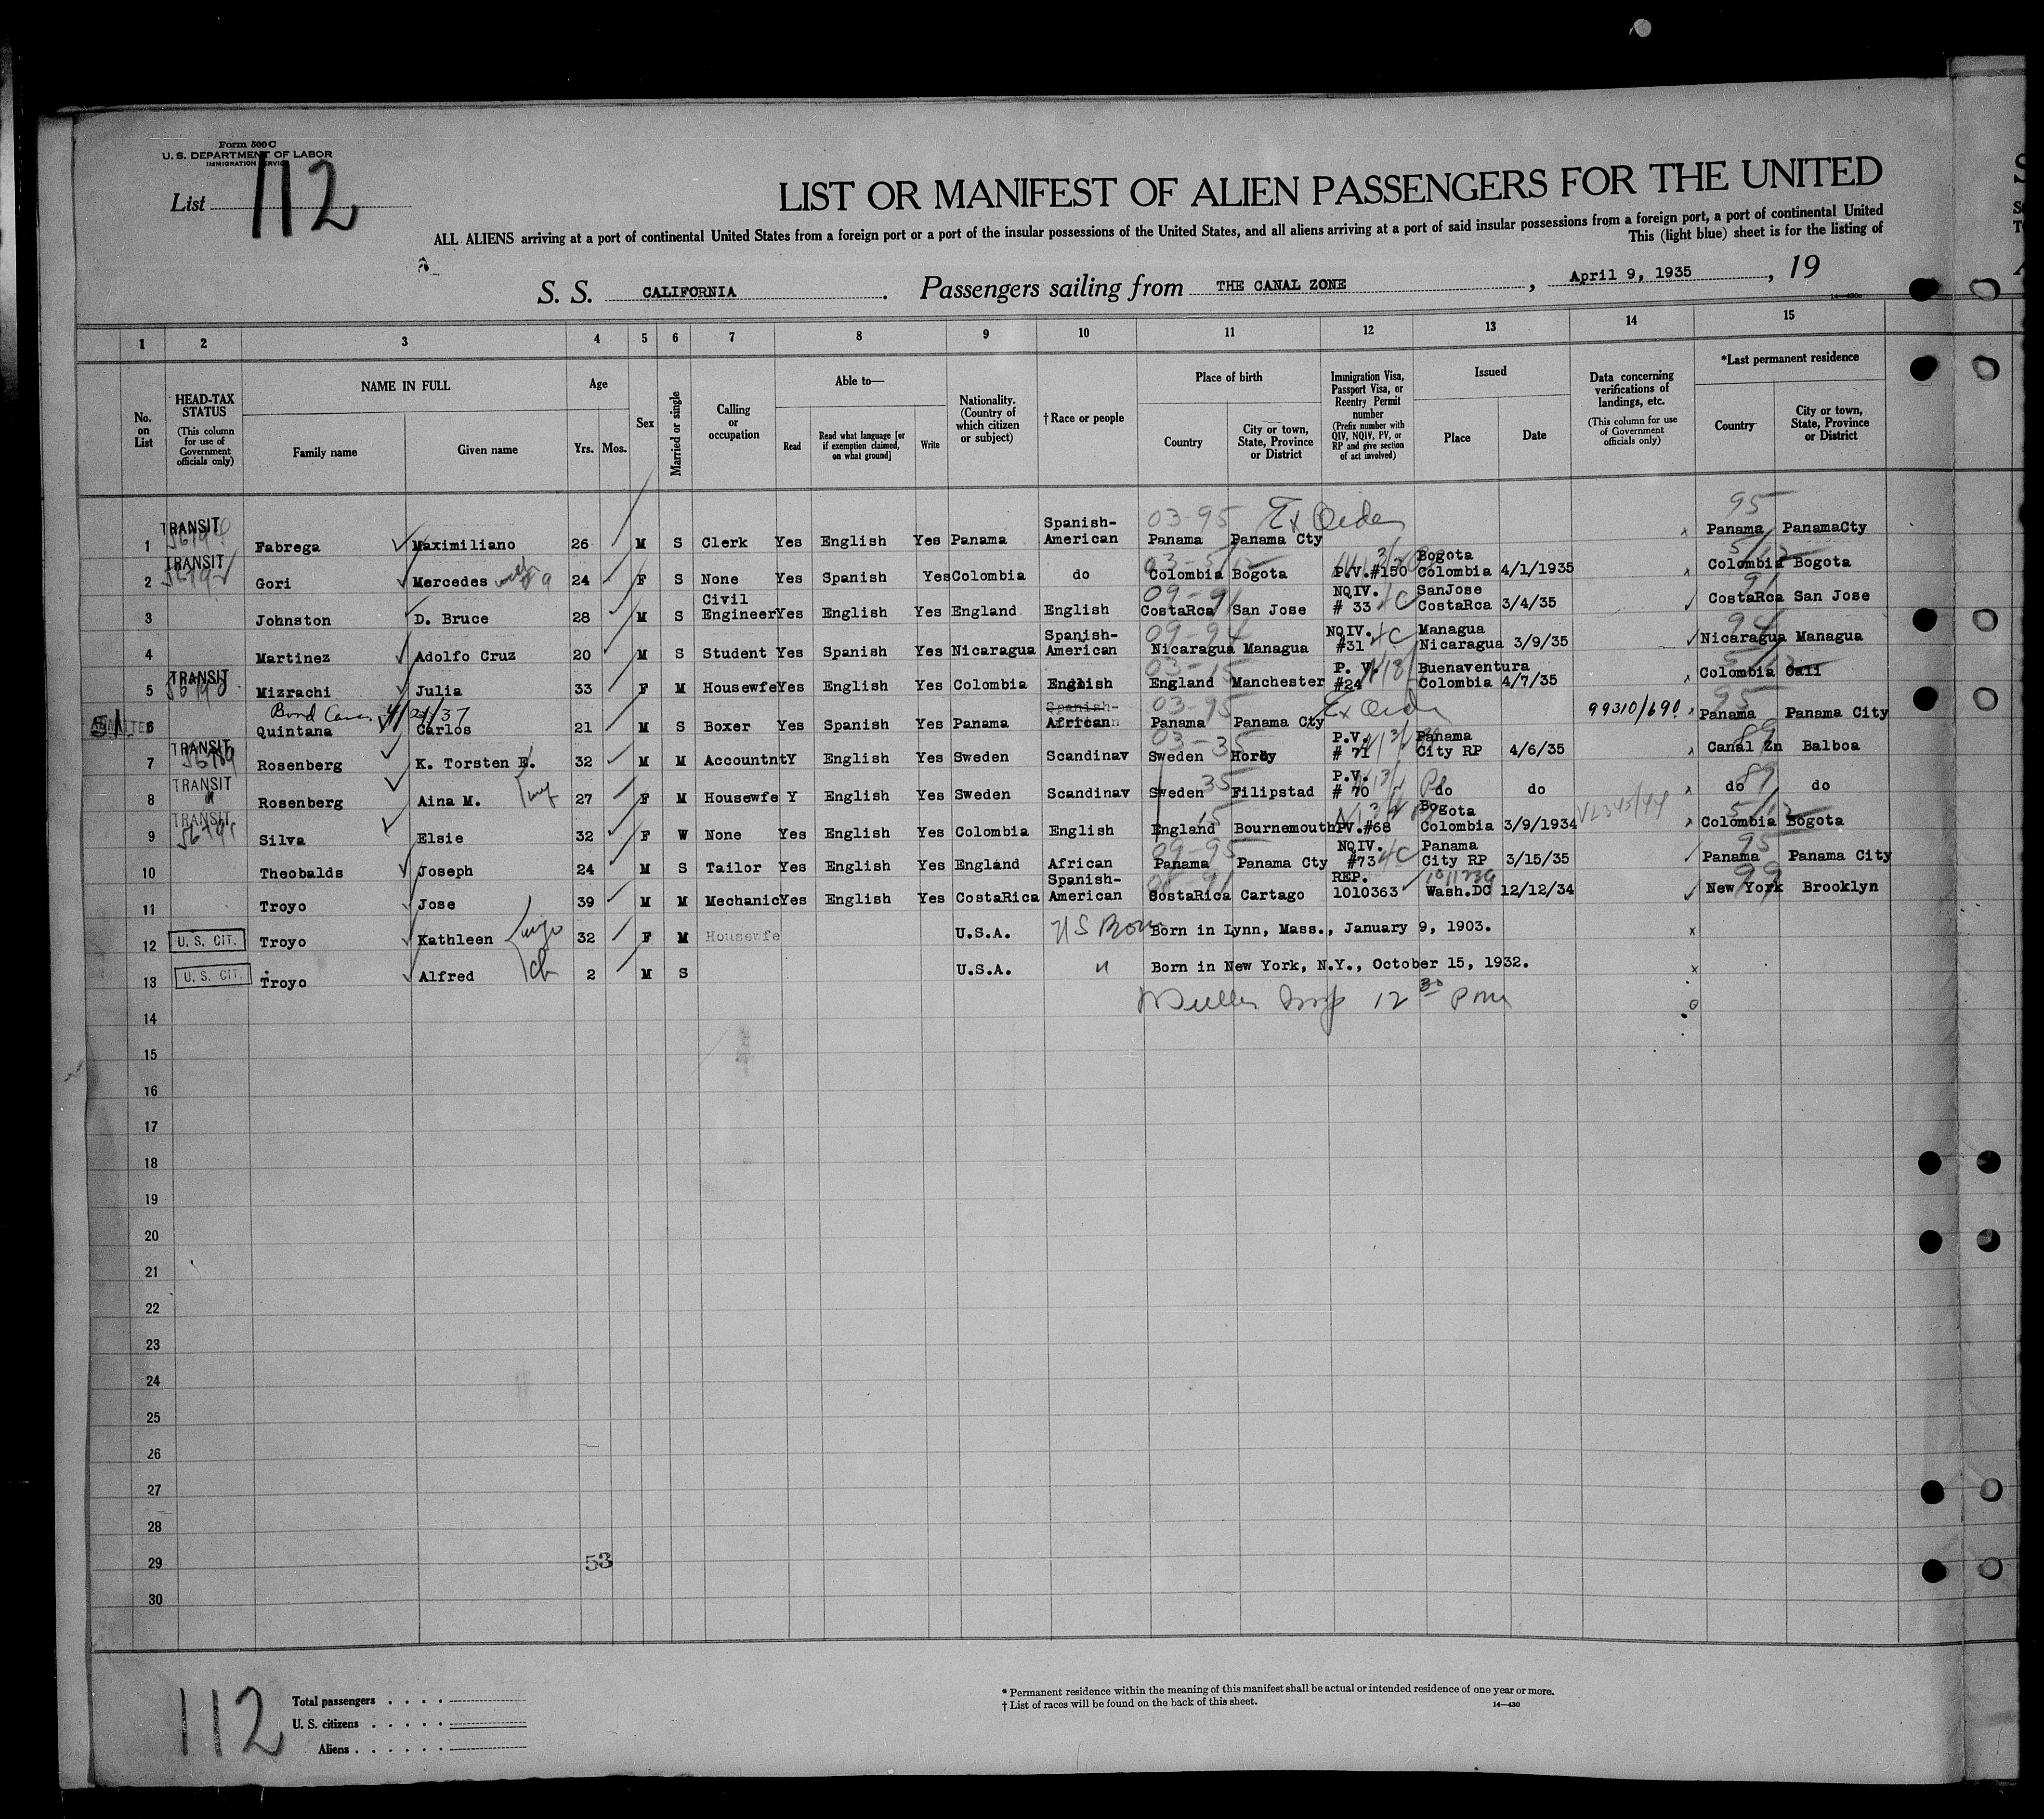 Form 500 C
U. S. DEPARTMENT OF LABOR
IMMIGRATION SERVICE
List 112
LIST OR MANIFEST OF ALIEN PASSENGERS FOR THE UNITED
ALL ALIENS arriving at a port of continental United States from a foreign port or a port of the insular possessions of the United States, and all aliens arriving at a port of said insular possessions from a foreign port, a port of continental United
This (light blue) sheet is for the listing of
S. S. CALIFORNIA. Passengers sailing from THE CANAL ZONE, April 9, 1935, 19
14—430
1 2 3 4 5 6 7 8 9 10 11 12 13 14 15
No. on List
HEAD-TAX STATUS (This column for use of Government officials only)
NAME IN FULL Family name Given name
Age Yrs. Mos.
Sex
Married or single
Calling or occupation
Able to— Read Read what language [or if exemption claimed, on what ground] Write
Nationality. (Country of which citizen or subject)
†Race or people
Place of birth Country City or town, State, Province or District
Immigration Visa, Passport Visa, or Reentry Permit number (Prefix number with QIV, NQIV, PV, or RP and give section of act involved)
Issued Place Date
Data concerning verifications of landings, etc. (This column for use of Government officials only)
*Last permanent residence Country City or town, State, Province or District
1 TRANSIT Fabrega Maximiliano 26 M S Clerk Yes English Yes Panama Spanish-American 03-95 Ex Order Panama Panama Cty 95 Panama PanamaCty
2 TRANSIT Gori Mercedes with #9 24 F S None Yes Spanish Yes Colombia do Colombia Bogota P.V.#150 Bogota Colombia 4/1/1935 Colombia Bogota
3 Johnston D. Bruce 28 M S Civil Engineer Yes English Yes England English 09-91 CostaRca San Jose NQIV. # 33 4C SanJose CostaRca 3/4/35 91 CostaRca San Jose
4 Martinez Adolfo Cruz 20 M S Student Yes Spanish Yes Nicaragua Spanish-American 09-94 Nicaragua Managua NQIV. #31 4C Managua Nicaragua 3/9/35 94 Nicaragua Managua
5 TRANSIT Mizrachi Julia 33 F M Housewfe Yes English Yes Colombia English 03-15 England Manchester P. V. #24 Buenaventura Colombia 4/7/35 Colombia Cali
Bond Canc. 4/21/37
6 Quintana Carlos 21 M S Boxer Yes Spanish Yes Panama Spanish- African 03-95 Panama Panama Cty Ex Order 99310/690 95 Panama Panama City
7 TRANSIT Rosenberg K. Torsten E. 32 M M Accountnt Y English Yes Sweden Scandinav 03-35 Sweden P.V. # 71 Panama City RP 4/6/35 89 Canal Zn Balboa
8 TRANSIT Rosenberg Aina M. 27 F M Housewfe Y English Yes Sweden Scandinav 35 Sweden Filipstad P.V. # 70 do do 89 do do
9 TRANSIT Silva Elsie 32 F W None Yes English Yes Colombia English 15 England Bournemouth PV.#68 Bogota Colombia 3/9/1934 Colombia Bogota
10 Theobalds Joseph 24 M S Tailor Yes English Yes England African 09-95 Panama Panama Cty NQIV. #73 4C Panama City RP 3/15/35 95 Panama Panama City
11 Troyo Jose 39 M M Mechanic Yes English Yes CostaRica Spanish-American CostaRica Cartago REP. 1010363 Wash.DC 12/12/34 99 New York Brooklyn
12 U. S. CIT. Troyo Kathleen 32 F M Housewfe U.S.A. US Born Born in Lynn, Mass., January 9, 1903.
13 U. S. CIT. Troyo Alfred ch 2 M S U.S.A. " Born in New York, N.Y., October 15, 1932.
12 30 Pm
14
15
16
17
18
19
20
21
22
23
24
25
26
27
28
29 53
30
112
Total passengers
U. S. citizens
Aliens
* Permanent residence within the meaning of this manifest shall be actual or intended residence of one year or more.
† List of races will be found on the back of this sheet.
14—430